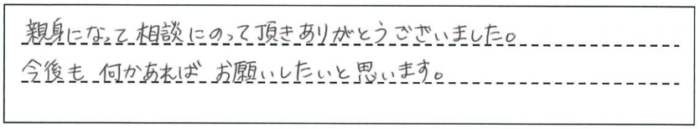 親身になって相談にのって頂きありがとうございました。
今後も何かあればお願いしたいと思います。